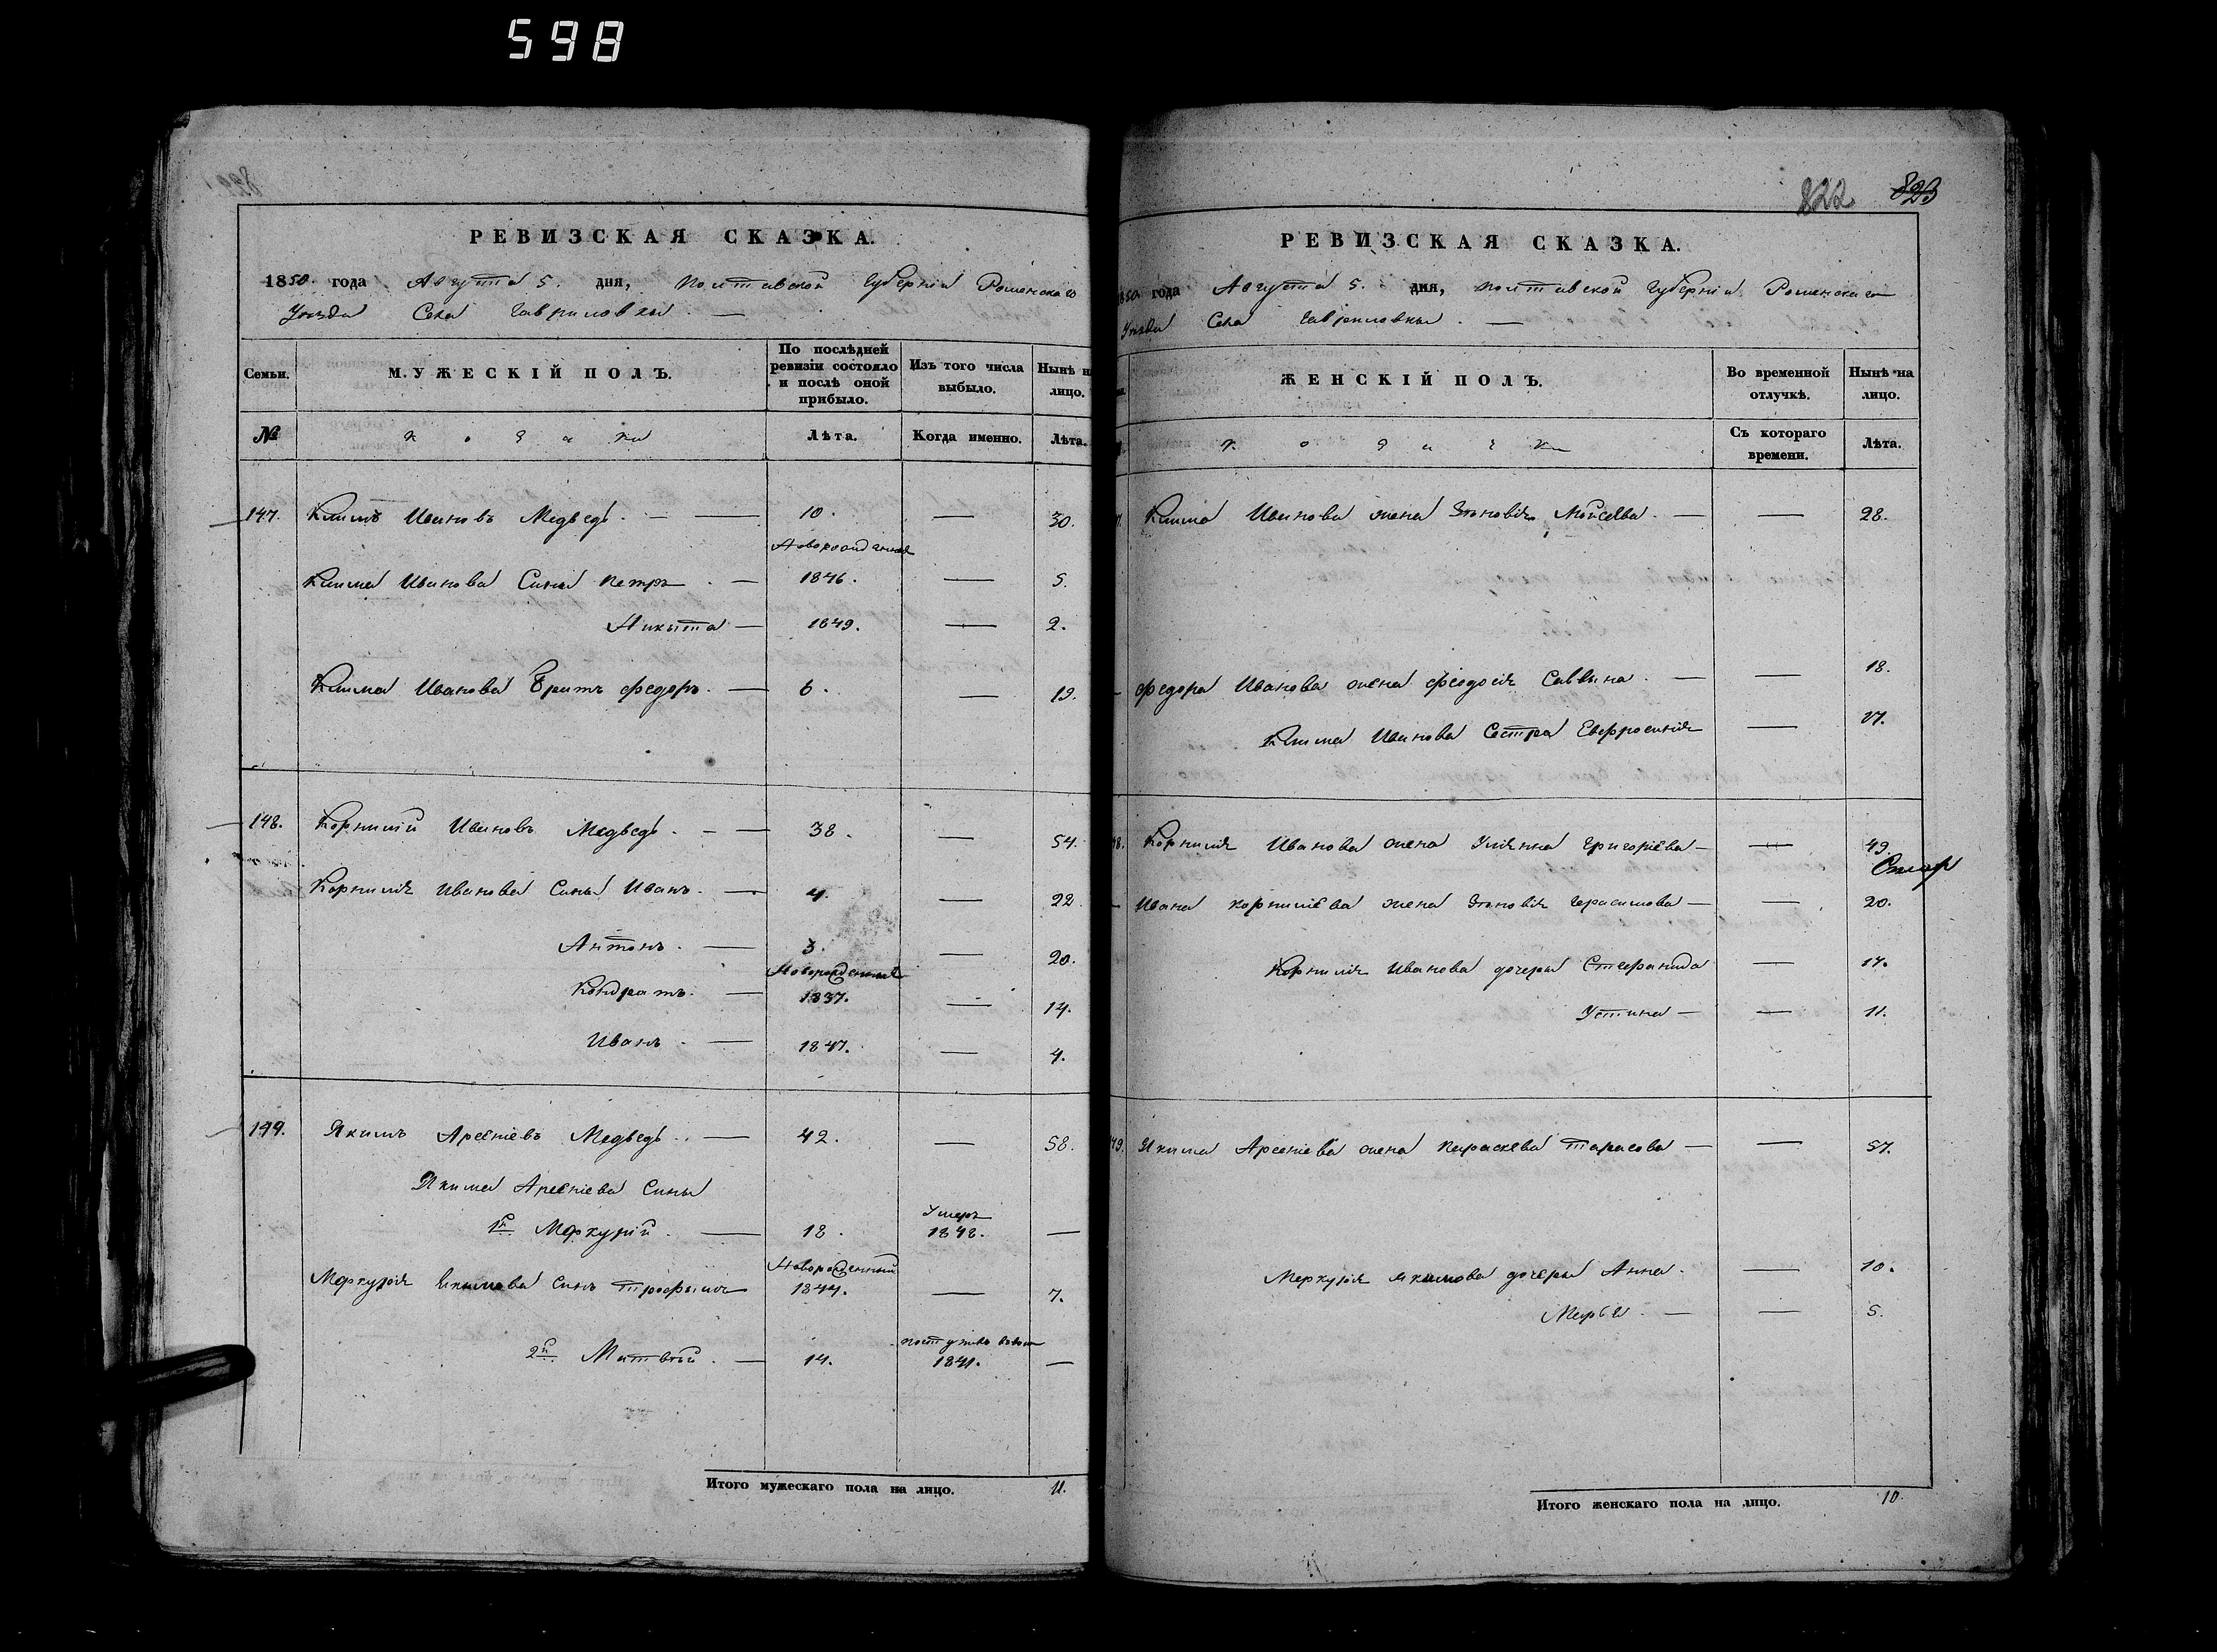 598
РЕВИЗСКАЯ СКАЗКА.
1850 года Августа 5. дня, Полтавской Губерніи Роменскаго
Уѣзда Села Гавриловки.
Семьи.
МУЖЕСКІЙ ПОЛЪ.
По послѣдней ревизіи состояло и послѣ оной прибыло.
Изъ того числа выбыло.
Нынѣ н лицо.
№
Козаки
Лѣта.
Когда именно.
Лѣта.
147. Климъ Ивановъ Медведь. — 10. — 30.
Новорожденные
Клима Иванова Сины Петръ — 1846. — 5.
Никыта — 1849. — 2.
Клима Иванова братъ Федоръ. — 6. — 19.
148. Корнилій Ивановъ Медведь. — 38. — 54.
Корнилія Иванова Сины Иванъ. — 4. — 22.
Антонъ. — 3. — 20.
Новорожденные
Кондратъ. — 1837. — 14.
Иванъ — 1847. — 4.
149. Якимъ Арсеніевъ Медведь. — 42. — 58.
Якима Арсеніева Сины
Умеръ
1й Меркурій. — 18. 1848. —
Новорожденный
Меркурія Якимова Синъ Трофимъ 1844. — 7.
2й Матвѣй. — 14. 1841. —
Итого мужескаго пола на лицо. 11.
822 823
РЕВИЗСКАЯ СКАЗКА.
1850 года Августа 5. дня, Полтавской Губерніи Роменскаго
Уѣзда Села Гавриловки. —
ЖЕНСКІЙ ПОЛЪ.
Во временной отлучкѣ.
Нынѣ на лицо.
Козачки
Съ котораго времени.
Лѣта.
Клима Иванова жена Зѣновія Мойсеева. — — 28.
Федора Иванова жена Феодосія Саввына. — — 18.
Клима Иванова Сестра Евфросинія — 17.
Корнилія Иванова жена Уліянна Григоріева — — 49.
Ивана Корниліева жена Зѣновія Герасимова — — 20.
Корнилія Иванова дочери Стефанида — 17.
Устина — — 11.
Якима Арсеніева жена Параскева Тарасова — — 57.
Меркурія Якимова дочери Анна. — 10.
Марья. — — 5.
Итого женскаго пола на лицо. 10.